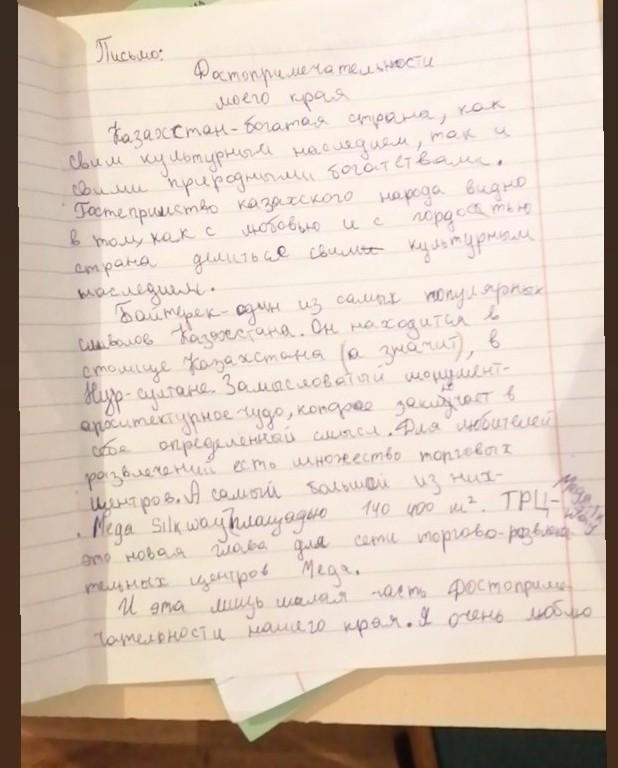 Письмо:
Достопримечательности
моего края
Казахстан-богатая страна, как
свим культурным наследием, так и
своими природными богатствами.
Гостеприимство казахского народа видно
в том, как с любовью и с гордостью
страна делиться своим культурным
наследием.
Байтерек-один из самых популярных
символов Казахстана. Он находится в
столице Казахстана (а значит), в
Нур-султане. Замысловатый монумент-
архитектурное чудо, которое заключает в
себе определённый смысл. Для любителей
развлечений есть множество торговых
центров. А самый большой из них-
Mega Silkway площадью 140 400 m². ТРЦ-
Mega Silk Way
это новая глава для сети торгово-развлека-
тельных центров Мега.
И эта лишь малая часть достоприме-
чательности нашего края. Я очень люблю